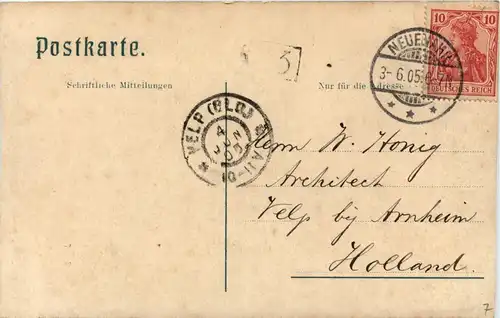 Postkarte.
Schriftliche Mitteilungen
Nur für die Adresse
10 10
DEUTSCHES REICH
3- 6.05
VELP (GLD.)
4 JUN
Herrn W. Honig
Architect
Velp bij Arnheim
Holland.
7